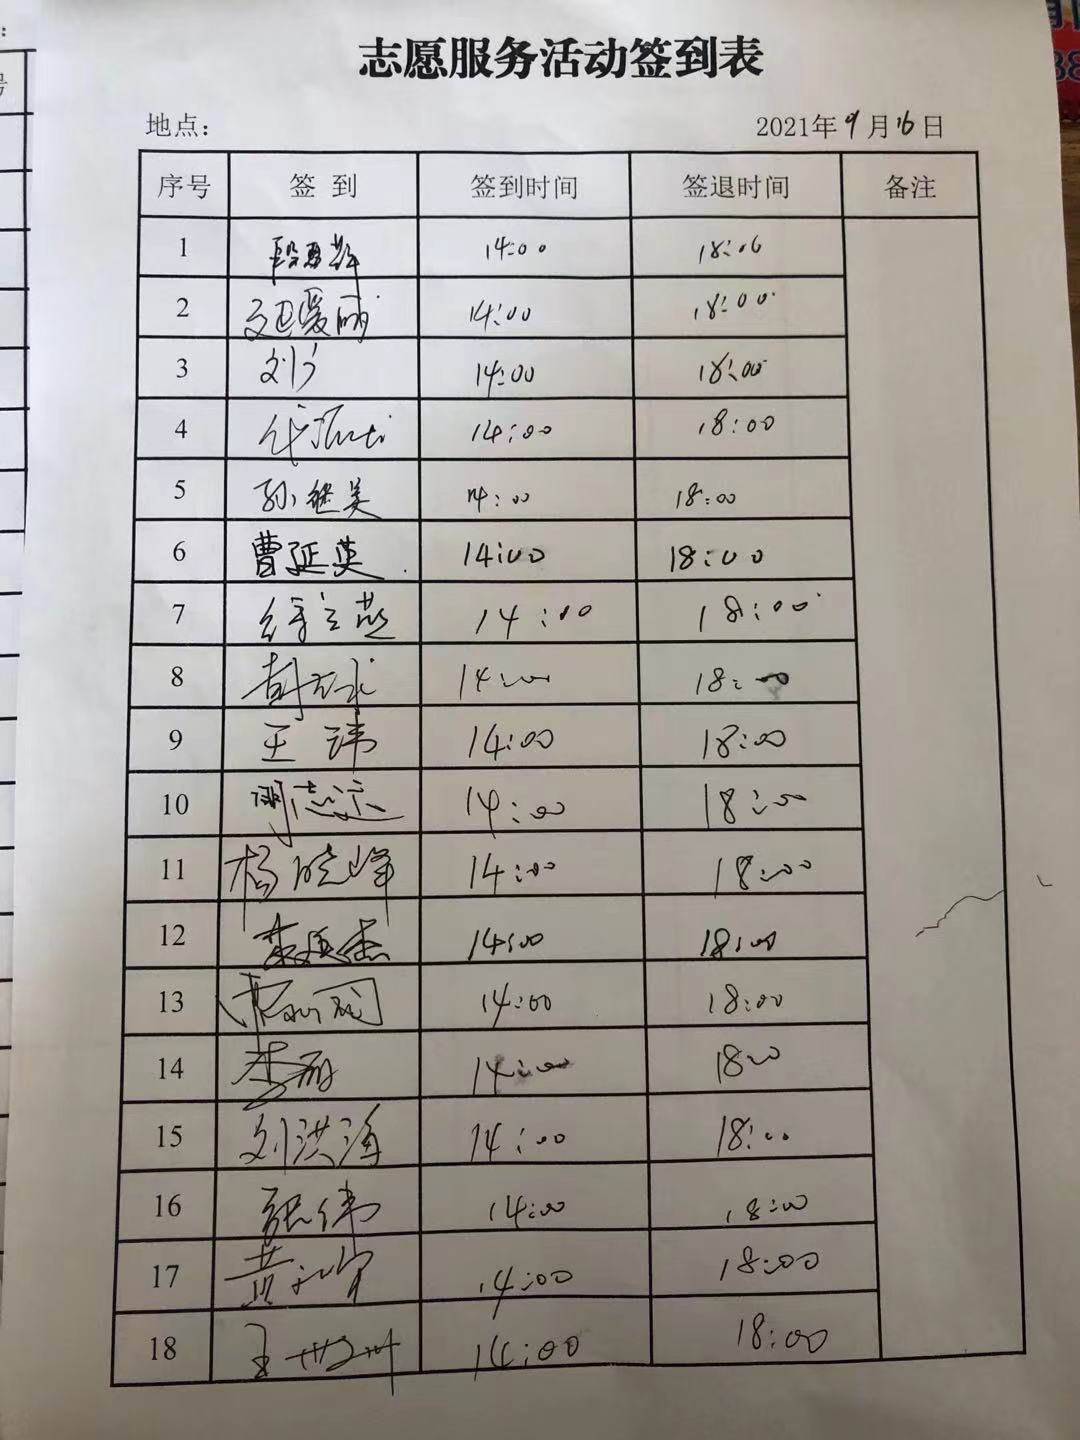 志愿服务活动签到表
地点：
2021年9月16日
序号 签到 签到时间 签退时间 备注
1 14:00 18:00
2 14:00 18:00
3 14:00 18:00
4 14:00 18:00
5 孙继美 14:00 18:00
6 曹延英 14:00 18:00
7 徐立燕 14:00 18:00
8 14:00 18:00
9 王玮 14:00 18:00
10 14:00 18:00
11 杨晓峰 14:00 18:00
12 14:00 18:00
13 14:00 18:00
14 李丽 14:00 18:00
15 刘洪海 14:00 18:00
16 张伟 14:00 18:00
17 14:00 18:00
18 14:00 18:00
号